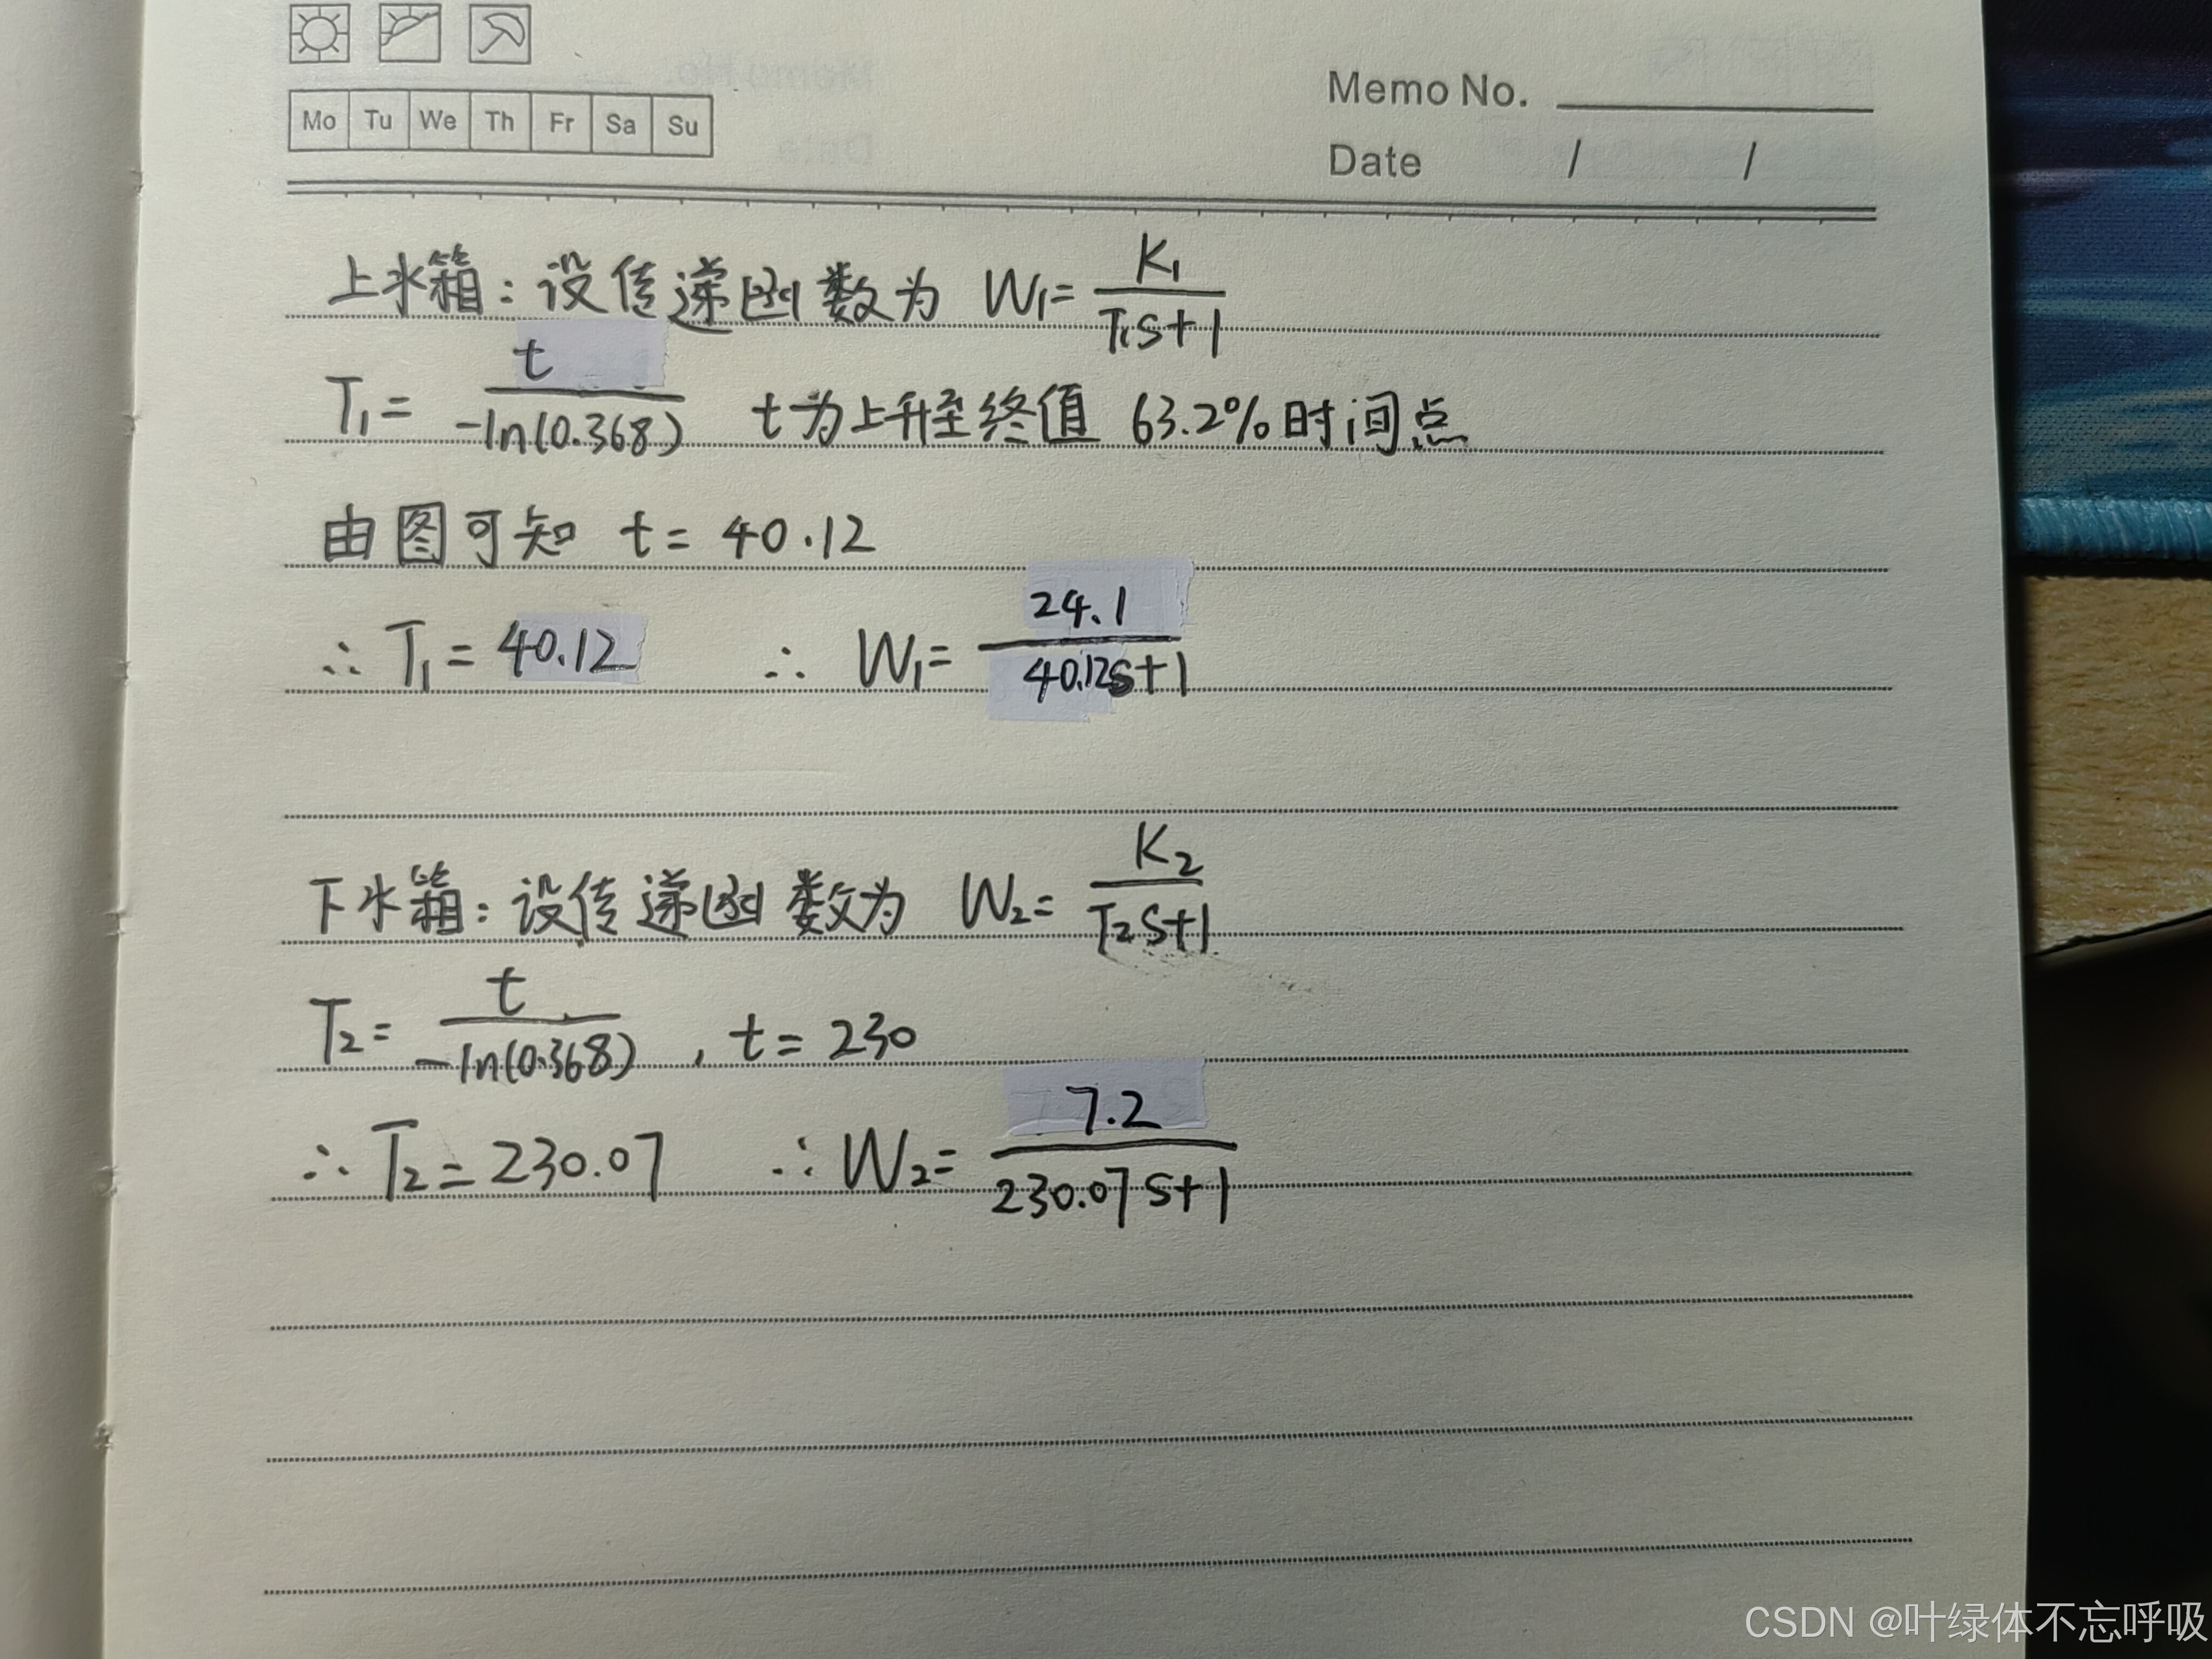 Mo Tu We Th Fr Sa Su
Memo No.
Date / /
上水箱：设传递函数为 W₁= K₁/(T₁s+1)
T₁= t/(-ln(0.368)) t为上升至终值 63.2%时间点
由图可知 t= 40.12
∴ T₁= 40.12 ∴ W₁= 24.1/(40.12s+1)
下水箱：设传递函数为 W₂= K₂/(T₂s+1)
T₂= t/(-ln(0.368)) , t= 230
∴ T₂= 230.07 ∴ W₂= 7.2/(230.07s+1)
CSDN @叶绿体不忘呼吸